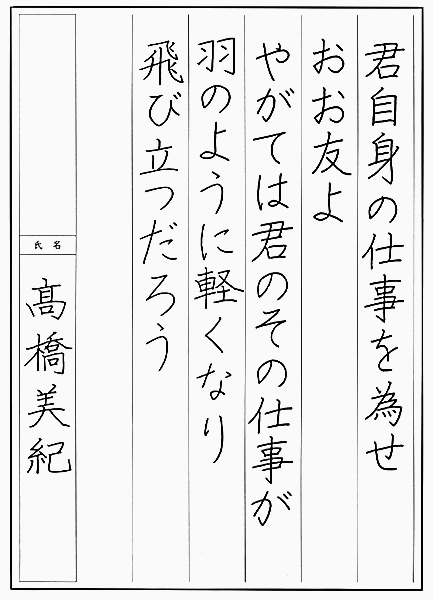 君自身の仕事を為せ
おお友よ
やがては君のその仕事が
羽のように軽くなり
飛び立つだろう
氏名
髙橋美紀